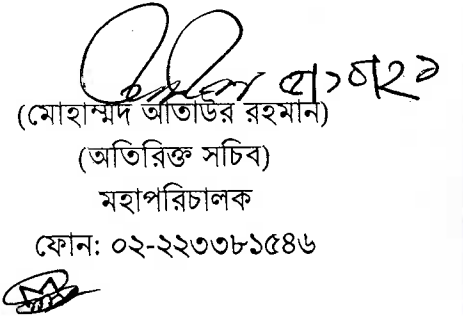 (মোহাম্মদ আতাউর রহমান)
(অতিরিক্ত সচিব)
মহাপরিচালক
ফোন: ০২-২২৩৩৮১৫৪৬